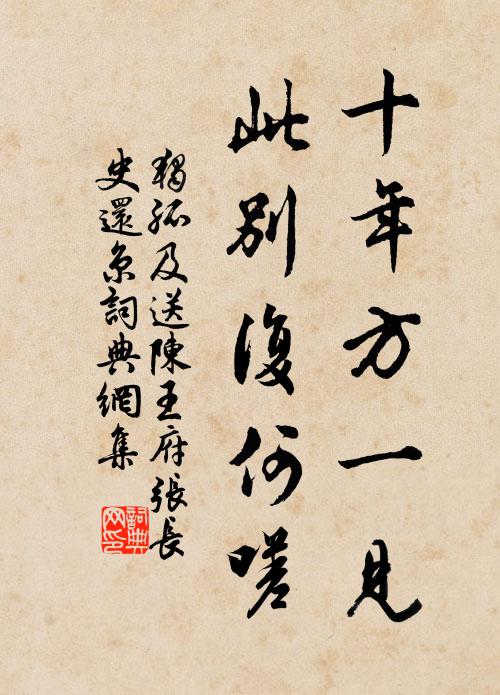 十年方一見
此別復何嗟
獨孤及送陳王府張長
史還京詞典網集
詞典網印